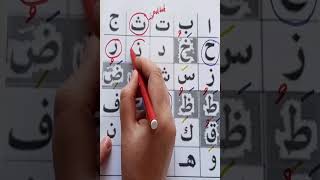 ا ب ت ث ج
ح خ د ذ ر
ز س ش ض
ط ظ ف
ق ك ن
و هـ